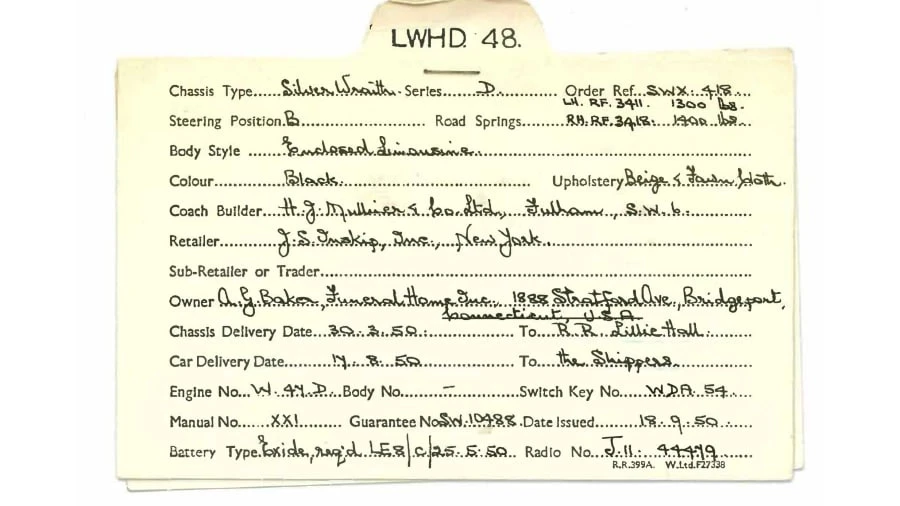 LWHD. 48.
Chassis Type.....Silver Wraith. Series.......D............ Order Ref...SWX. 418...
LH. RF. 3411. 1300 lbs.
Steering Position B........................ Road Springs........RH. RF. 3418. 1400 lbs...
Body Style .......Enclosed Limousine.............................
Colour...............Black............................. Upholstery Beige & Fawn Cloth.
Coach Builder...H. J. Mulliner & Co. Ltd., Fulham., S.W. 6.............
Retailer............J. S. Inskip, Inc., New York................................
Sub-Retailer or Trader...............................................................
Owner A. G. Baker, Funeral Home Inc. 1888 Stratford Ave., Bridgeport,
Connecticut, U.S.A.
Chassis Delivery Date...30. 3. 50.................To...R. R. Lillie Hall.........
Car Delivery Date..........17. 8. 50...............To....the Shippers...............
Engine No...W. 47. D...Body No........–............Switch Key No......WDA. 54....
Manual No......XXI......... Guarantee No SW. 10488. Date Issued.........18. 9. 50......
Battery Type. Exide, req'd. LE8/C/25. 5. 50... Radio No...J. 11. 44479......
R.R.399A. W.Ltd.F27338